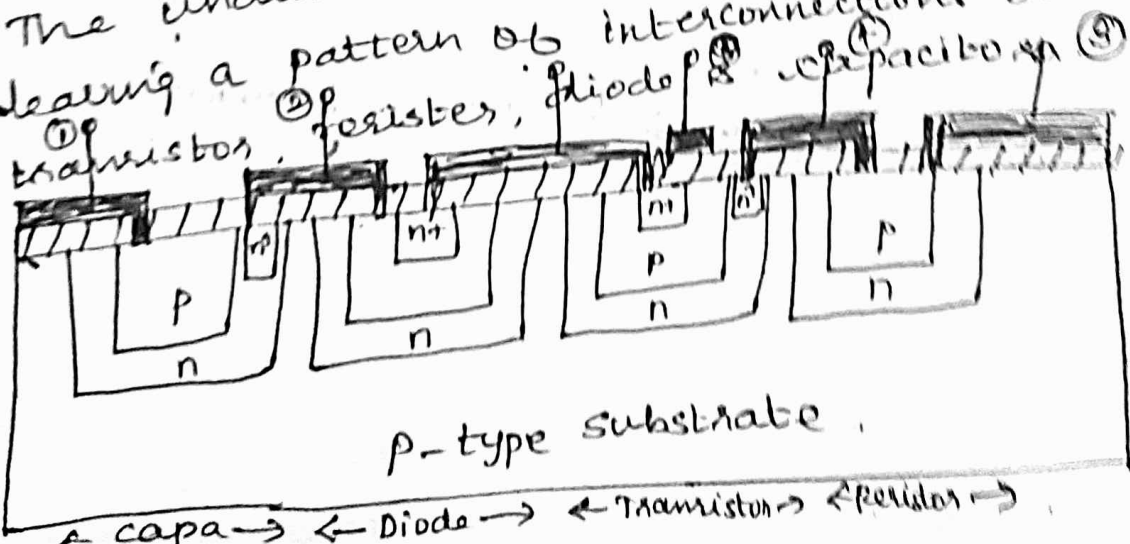 The
leaving a pattern of interconnections
transistor, resister, diode & capacitor
① ② ④ ⑤
n+ n+ n+ n+
p p p
n n n n
p-type substrate.
← capa → ← Diode → ← Transistor → ← Resistor →